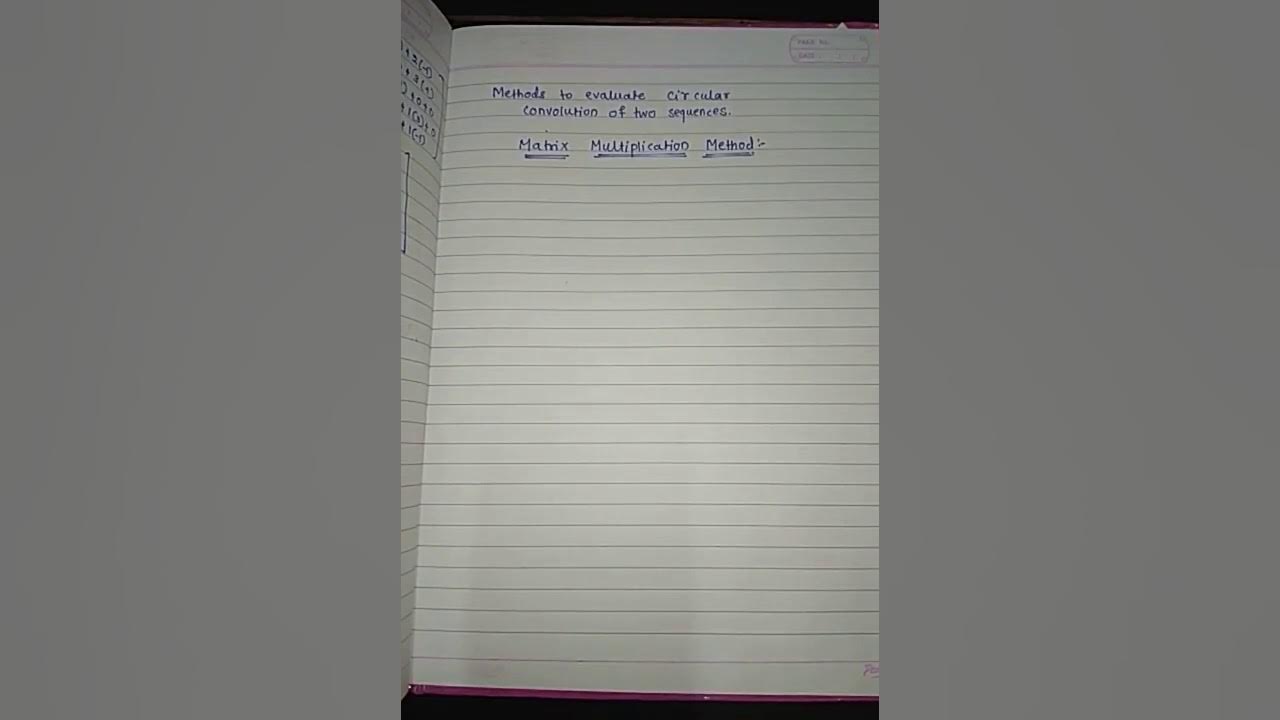 PAGE No.
DATE
Methods to evaluate Circular
convolution of two sequences.
Matrix Multiplication Method:-
+2(-1)
+3(1)
+0+0
+1(3)+0
+1(-1)